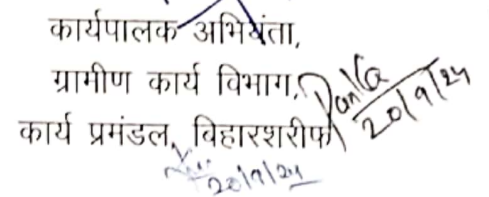 कार्यपालक अभियंता,
ग्रामीण कार्य विभाग,
कार्य प्रमंडल, विहारशरीफ
20/9/24
20/9/24